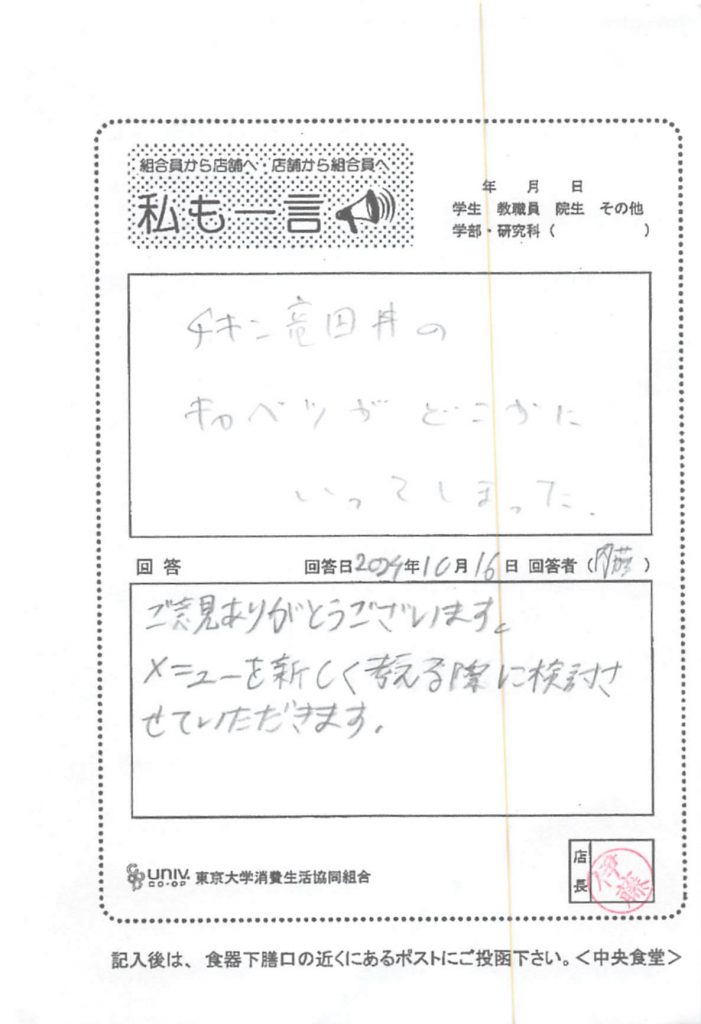 組合員から店舗へ・店舗から組合員へ
私も一言
年 月 日
学生 教職員 院生 その他
学部・研究科 ( )
チキン竜田丼の
キャベツがどこかに
いってしまった.
回答 回答日2024年10月16日 回答者 (内藤)
ご意見ありがとうございます。
メニューを新しく考える際に検討さ
せていただきます.
店長
伊藤
UNIV. CO-OP 東京大学消費生活協同組合
記入後は、食器下膳口の近くにあるポストにご投函下さい。<中央食堂>